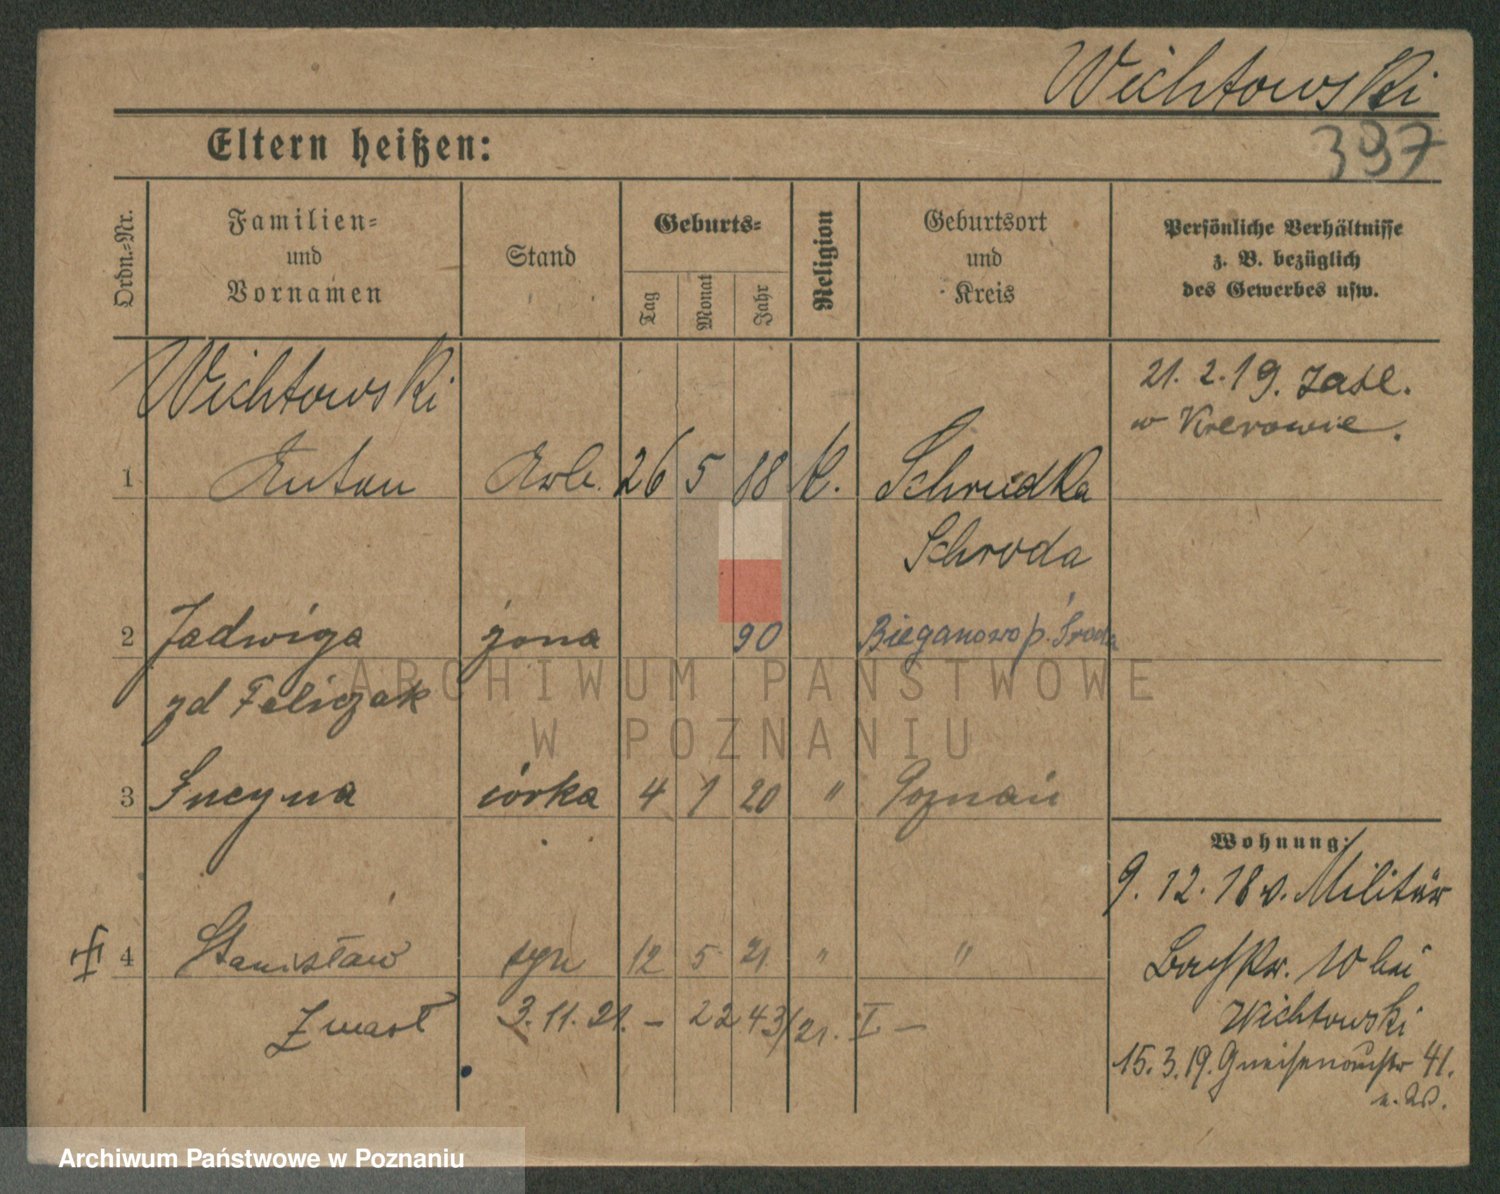 Wichtowski
397
Eltern heißen:
Ordn.-Nr.
Familien-
und
Vornamen
Stand
Geburts-
Tag
Monat
Jahr
Religion
Geburtsort
und
Kreis
Persönliche Verhältnisse
z. B. bezüglich
des Gewerbes usw.
Wichtowski
1 Anton Arb. 26 5 88 K. Schrudka
Schroda
21. 2. 19. zasl.
w Krerowie.
2 Jadwiga żona 90 Bieganowo p. Środa
zd Feliczak
3 Lucyna córka 4 1 20 " Poznań
4 Stanisław syn 12 5 21 " "
Zmarł 3.11.21. – 2243/21. I –
Wohnung:
9. 12. 18 v. Militär
10 bei
Wichtowski
15. 3. 19. Gneisenaustr 41.
ARCHIWUM PAŃSTWOWE
W POZNANIU
Archiwum Państwowe w Poznaniu